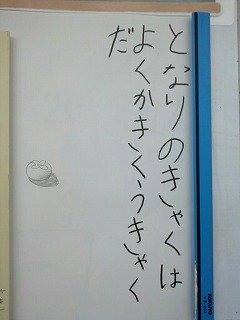 となりのきゃくは
よくかきくうきゃく
だ